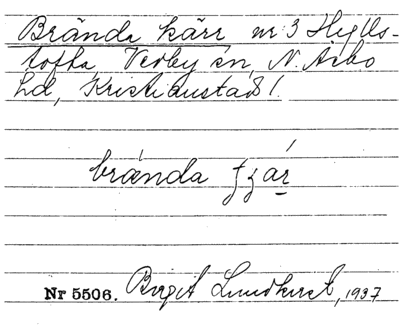 Brända kärr nr 3 Hyllstofta, Verby sn, N. Åsbo
hd, Kristianstads l.
brända ʈʐár
Nr 5506. Birgit Lundkvist, 1937